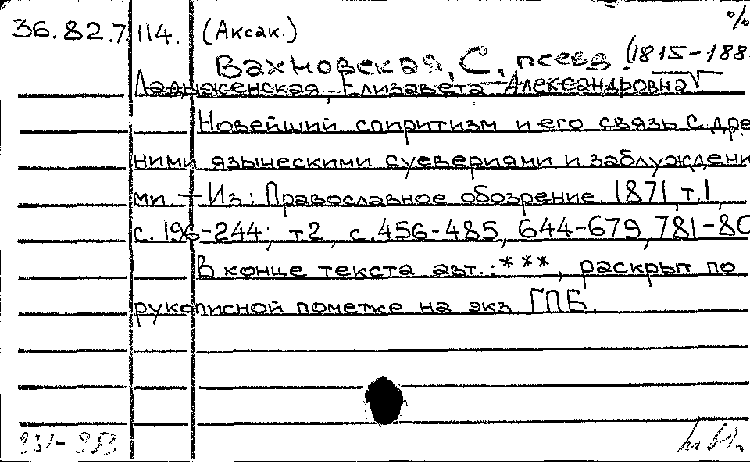 %
36.82.7.114. (Аксак.)
Вахновская, С, псевд (1815-188
Ладыженская, Елизавета Александровна
Новейший спиритизм и его связь с дре
ними языческими суевериями и заблуждени
ми. – Из: Православное обозрение 1871, т.1,
с. 196-244; т2, с.456-485, 644-679, 781-80
В конце текста авт.: ***, раскрыт по
рукописной пометке на экз ГПБ.